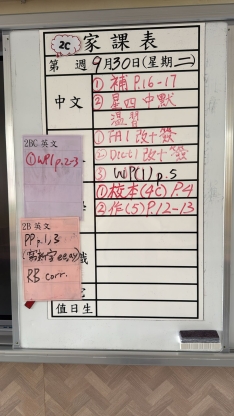 2C 家課表
第 週 9月30日(星期二)
中文
① 補 P.16-17
② 星四 中默
溫習
① FA1 改+簽
② Dict1 改+簽
③ WP(1) p.5
① 校本(4C) P.4
② 作(5) P.12-13
2BC 英文
① WP1 p.2-3
2B 英文
PP p.1, 3
RB corr.
值日生